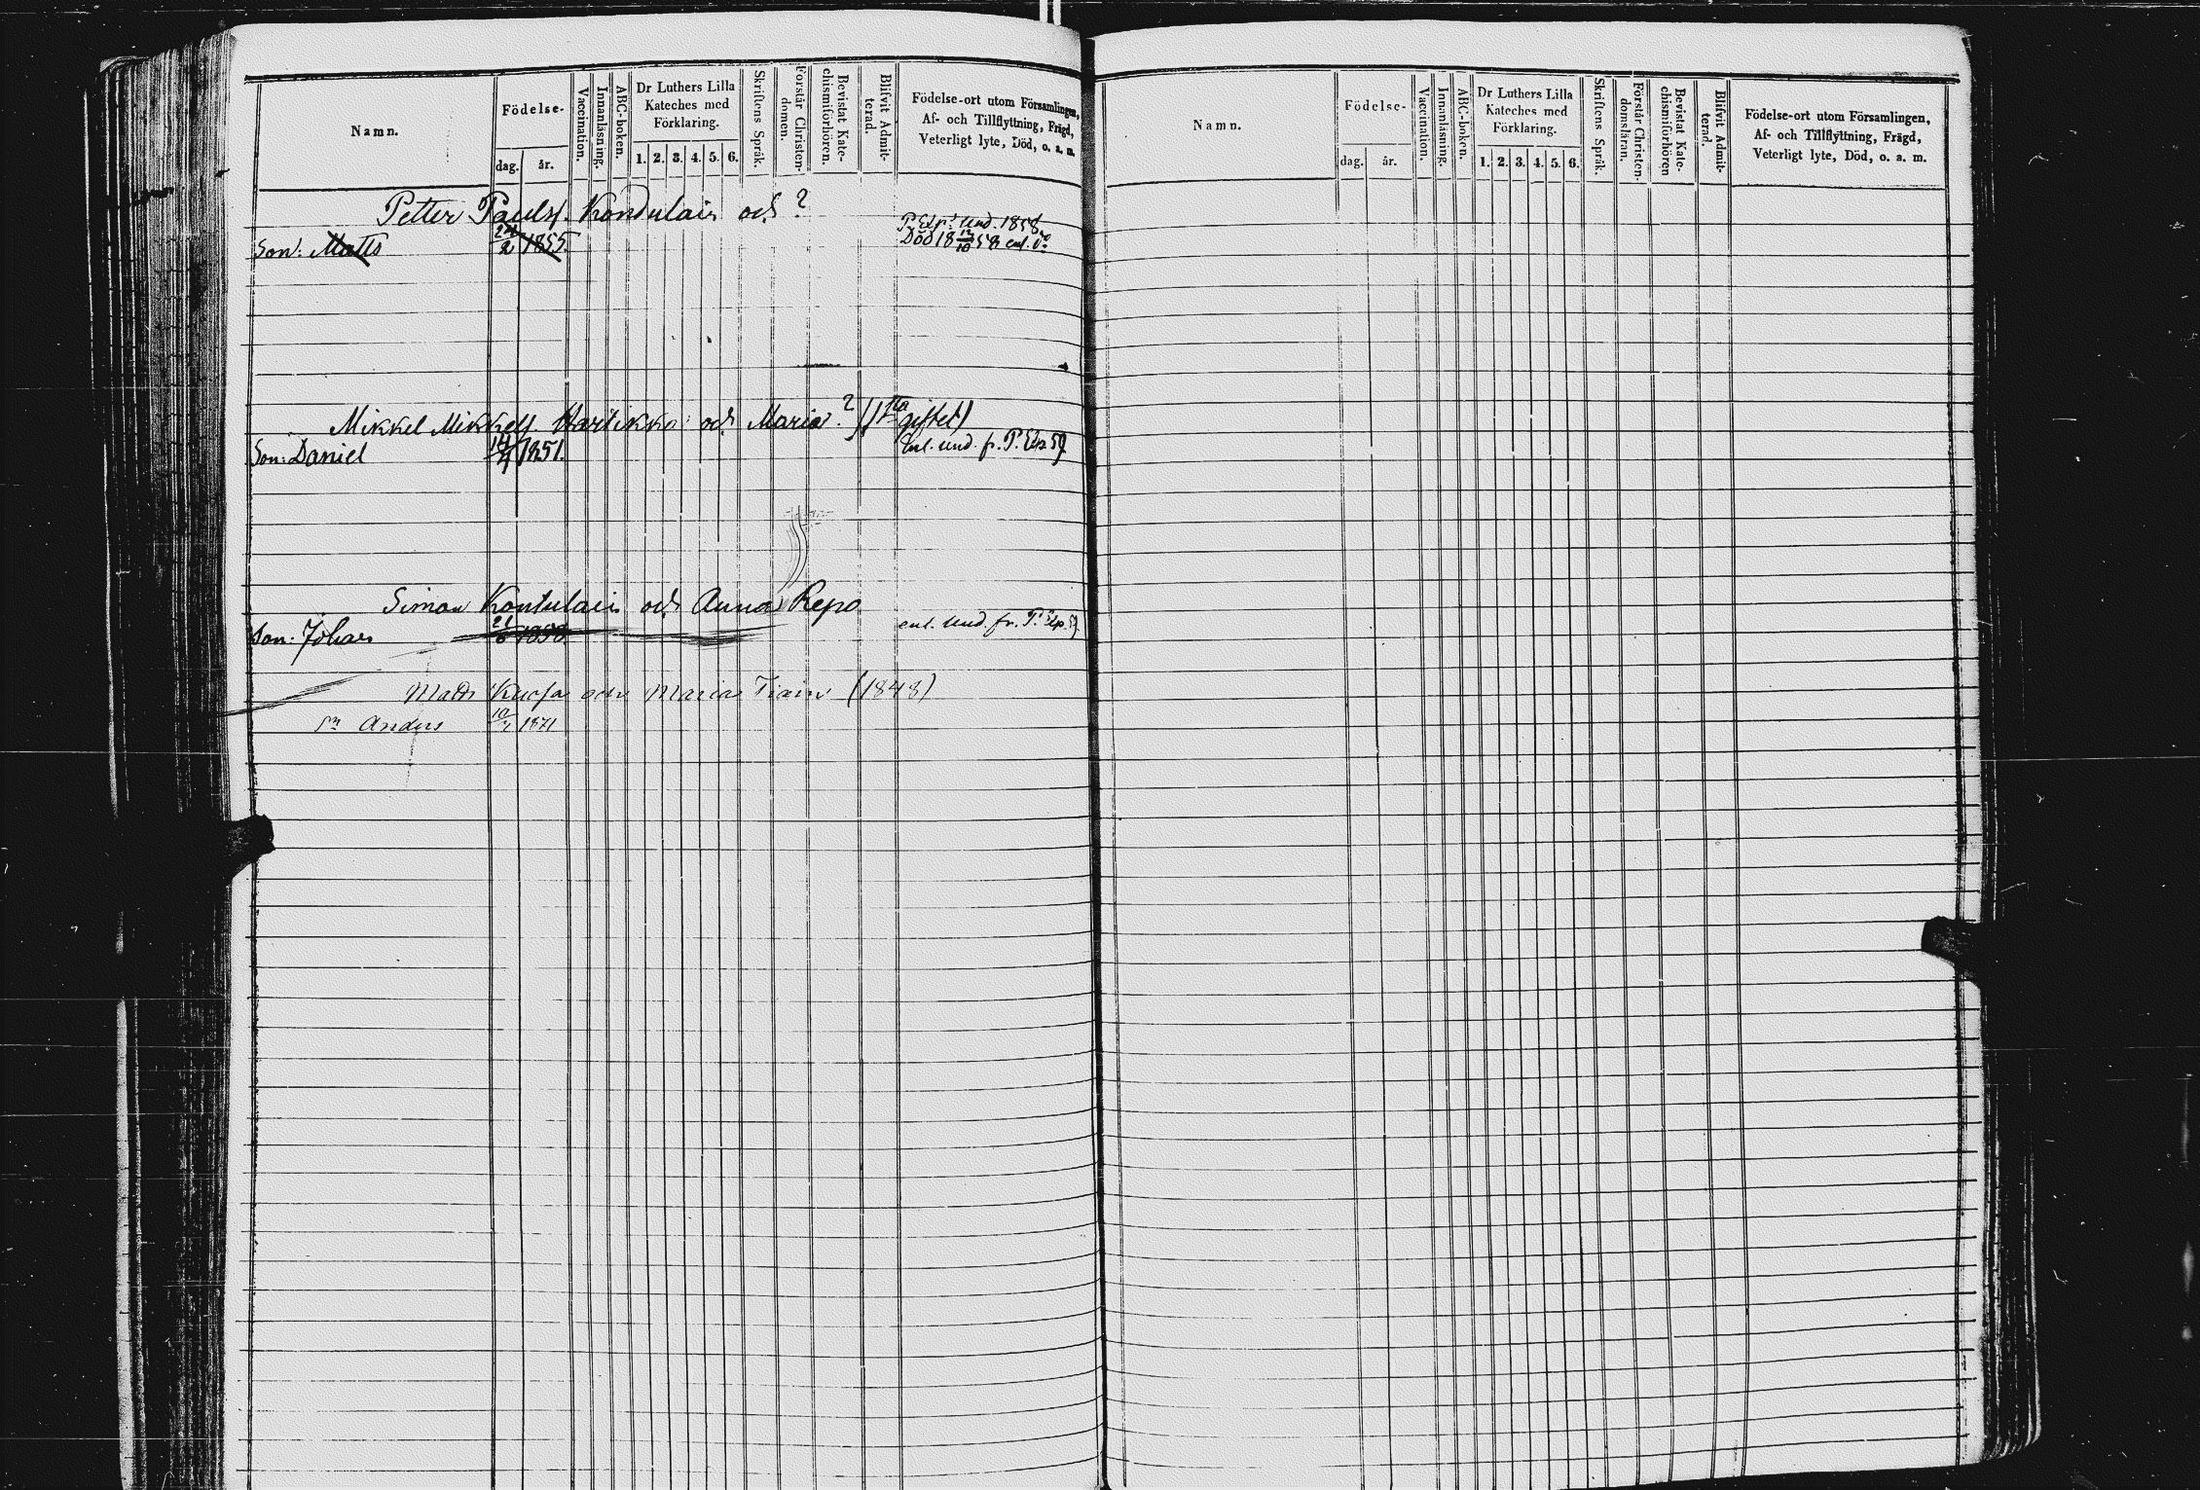 Namn.
Födelse-
dag. år.
Vaccination.
Innanläsning.
ABC-boken.
Dr Luthers Lilla
Kateches med
Förklaring.
1. 2. 3. 4. 5. 6.
Skriftens Språk.
Förstår Christen-
domen.
Bevistat Kate-
chismiförhören.
Blifvit Admit-
terad.
Födelse-ort utom Församlingen,
Af- och Tillflyttning, Frägd,
Veterligt lyte, Död, o. a. m.
Petter Paulsf. Kondulain och ?
Son: Matts 24/2 1855.
und. 1858
Död 18 12/10 58 enl. do
Mikkel Mikkelsf. Hartikka och Maria ? (1sta giftet)
Son: Daniel 14/4 1851. Enl. und. fr. P.
Simon Kontulain och Anna Repo
Son: Johan 1858. enl. und. fr. P.
Matts och Maria Tiain (1848)
Sn Anders 1871
Namn.
Födelse-
dag. år.
Vaccination.
Innanläsning.
ABC-boken.
Dr Luthers Lilla
Kateches med
Förklaring.
1. 2. 3. 4. 5. 6.
Skriftens Språk.
Förstår Christen-
domsläran.
Bevistat Kate-
chismiförhören
Blifvit Admit-
terad.
Födelse-ort utom Församlingen,
Af- och Tillflyttning, Frägd,
Veterligt lyte, Död, o. a. m.